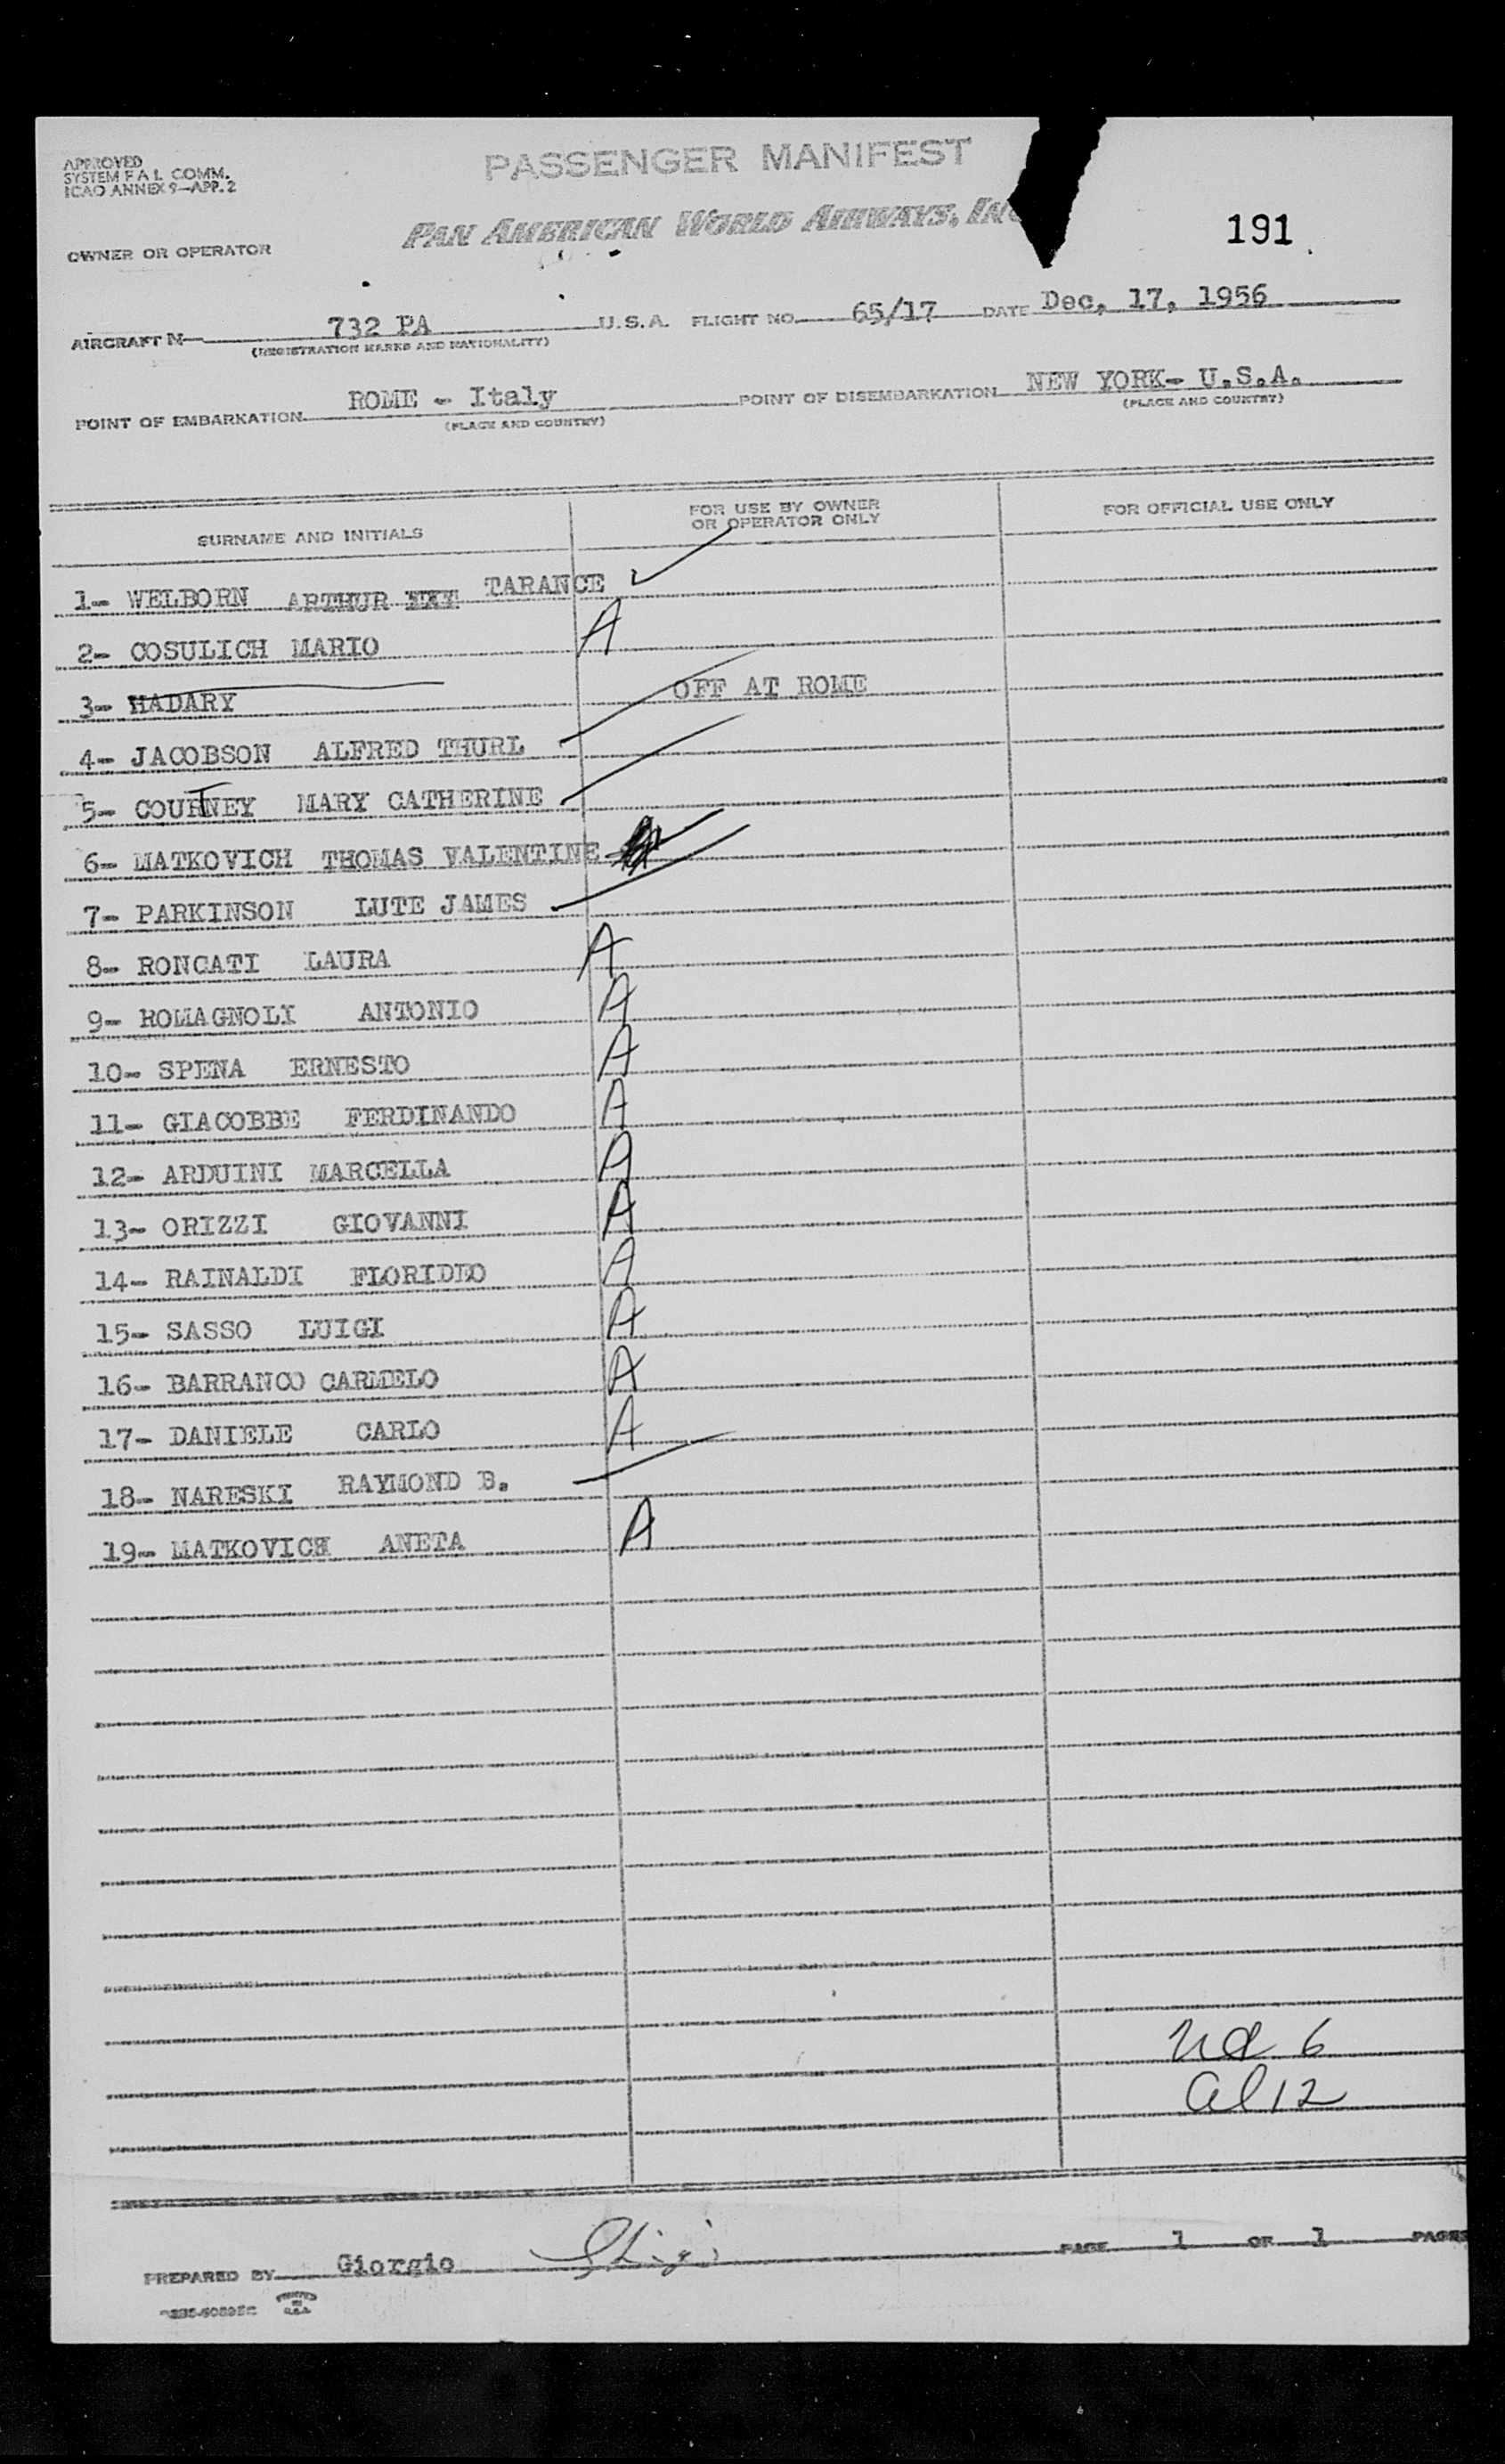 APPROVED
SYSTEM F A L COMM.
ICAO ANNEX 9-APP. 2
PASSENGER MANIFEST
PAN AMERICAN WORLD AIRWAYS, INC
191
OWNER OR OPERATOR
AIRCRAFT N- 732 PA U.S.A. FLIGHT NO. 65/17 DATE Dec, 17, 1956
(REGISTRATION MARKS AND NATIONALITY)
POINT OF EMBARKATION ROME - Italy POINT OF DISEMBARKATION NEW YORK- U.S.A.
(PLACE AND COUNTRY) (PLACE AND COUNTRY)
SURNAME AND INITIALS FOR USE BY OWNER OR OPERATOR ONLY FOR OFFICIAL USE ONLY
1- WELBORN ARTHUR TARANCE
2- COSULICH MARIO A
3- HADARY OFF AT ROME
4- JACOBSON ALFRED THURL
5- COURTNEY MARY CATHERINE
6- MATKOVICH THOMAS VALENTINE
7- PARKINSON LUTE JAMES
8- RONCATI LAURA A
9- ROMAGNOLI ANTONIO A
10- SPENA ERNESTO A
11- GIACOBBE FERDINANDO A
12- ARDUINI MARCELLA A
13- ORIZZI GIOVANNI A
14- RAINALDI FLORIDEO A
15- SASSO LUIGI A
16- BARRANCO CARMELO A
17- DANIELE CARLO A
18- NARESKI RAYMOND B.
19- MATKOVICH ANETA A
6
al 12
PREPARED BY Giorgio PAGE 1 OF 1 PAGES
PRINTED IN U.S.A.